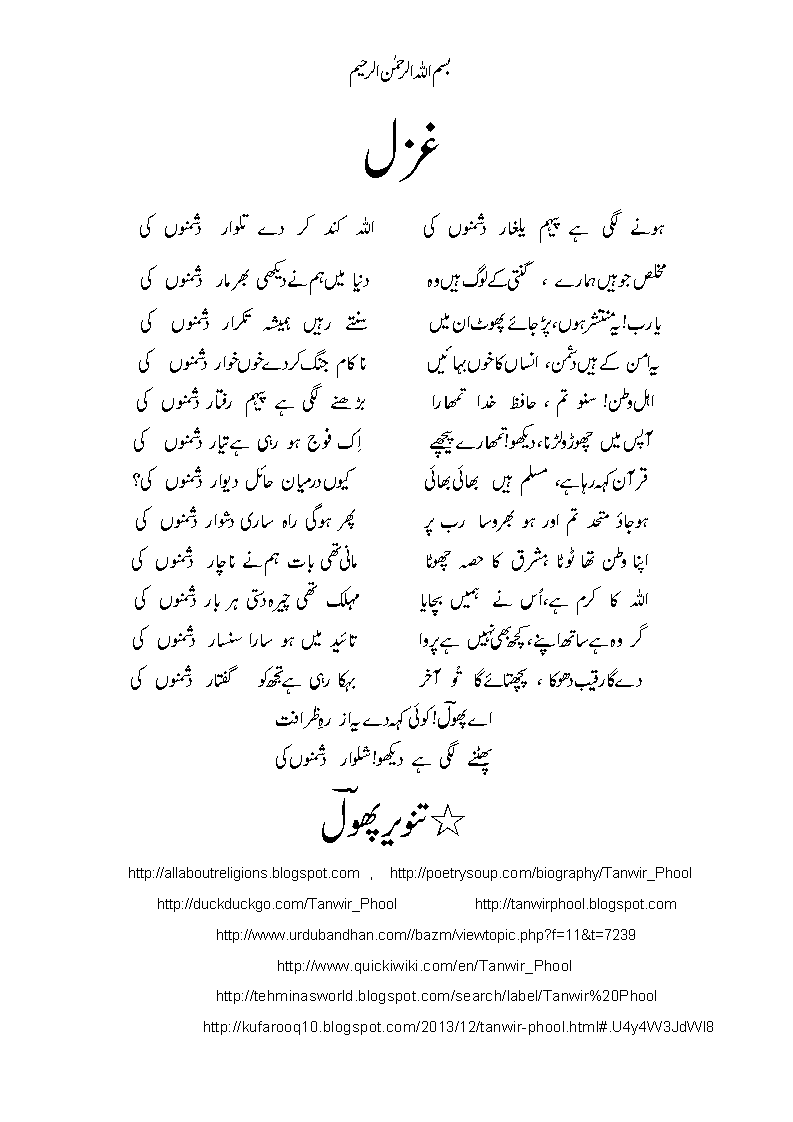 بسم اللہ الرحمٰن الرحیم
غزل
ہونے لگی ہے پیہم یلغار دشمنوں کی اللہ کند کر دے تلوار دشمنوں کی
مخلص جو ہیں ہمارے ، گنتی کے لوگ ہیں وہ دنیا میں ہم نے دیکھی بھرمار دشمنوں کی
یا رب! یہ منتشر ہوں، پڑ جائے پھوٹ ان میں بنتے رہیں ہمیشہ تکرار دشمنوں کی
یہ امن کے ہیں دشمن، انساں کا خوں بہائیں ناکام جنگ کر دے خوں خوار دشمنوں کی
اہل وطن! سنو تم ، حافظ خدا تمھارا بڑھنے لگی ہے پیہم رفتار دشمنوں کی
آپس میں چھوڑو لڑنا، دیکھو! تمھارے پیچھے اِک فوج ہو رہی ہے تیار دشمنوں کی
قرآن کہہ رہا ہے، مسلم ہیں بھائی بھائی کیوں درمیان حائل دیوار دشمنوں کی؟
ہو جاؤ متحد تم اور ہو بھروسا رب پر پھر ہوگی راہ ساری دشوار دشمنوں کی
اپنا وطن تھا ٹوٹا، مشرق کا حصہ چھوٹا مانی تھی بات ہم نے ناچار دشمنوں کی
اللہ کا کرم ہے، اُس نے ہمیں بچایا مہلک تھی چیرہ دستی ہر بار دشمنوں کی
گر وہ ہے ساتھ اپنے، کچھ بھی نہیں ہے پروا تائید میں ہو سارا سنسار دشمنوں کی
دے گا رقیب دھوکا ، پچھتائے گا تُو آخر بہکا رہی ہے تجھ کو گفتار دشمنوں کی
اے پھولؔ! کوئی کہہ دے یہ از رہِ ظرافت
پھٹنے لگی ہے دیکھو! شلوار دشمنوں کی
☆ تنویر پھولؔ
http://allaboutreligions.blogspot.com , http://poetrysoup.com/biography/Tanwir_Phool
http://duckduckgo.com/Tanwir_Phool http://tanwirphool.blogspot.com
http://www.urdubandhan.com//bazm/viewtopic.php?f=11&t=7239
http://www.quickiwiki.com/en/Tanwir_Phool
http://tehminasworld.blogspot.com/search/label/Tanwir%20Phool
http://kufarooq10.blogspot.com/2013/12/tanwir-phool.html#.U4y4W3JdWI8